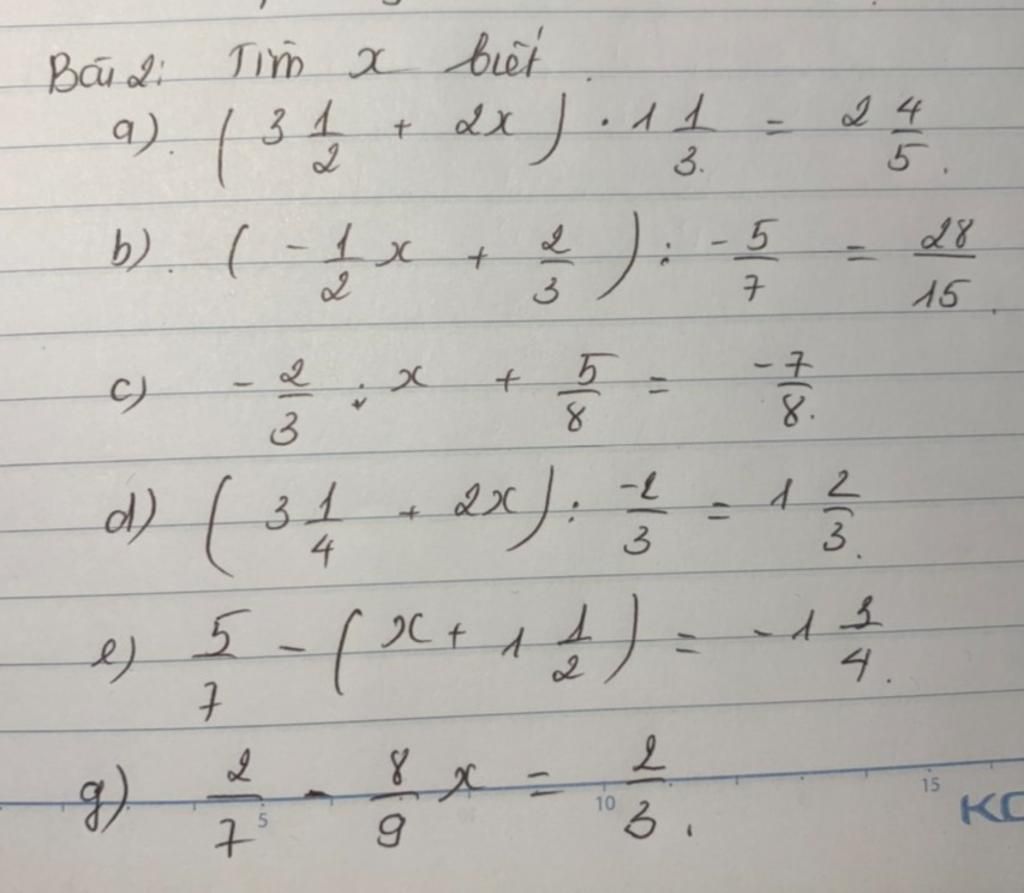 Bài 2: Tìm x biết.
a). (3 1/2 + 2x) . 1 1/3. = 2 4/5.
b). (- 1/2 x + 2/3) : - 5/7 = 28/15.
c) - 2/3 : x + 5/8 = -7/8.
d) (3 1/4 + 2x) : -2/3 = 1 2/3.
e) 5/7 - (x + 1 1/2) = - 1 3/4.
g) 2/7 - 8/9 x = 2/3.
5 10 15